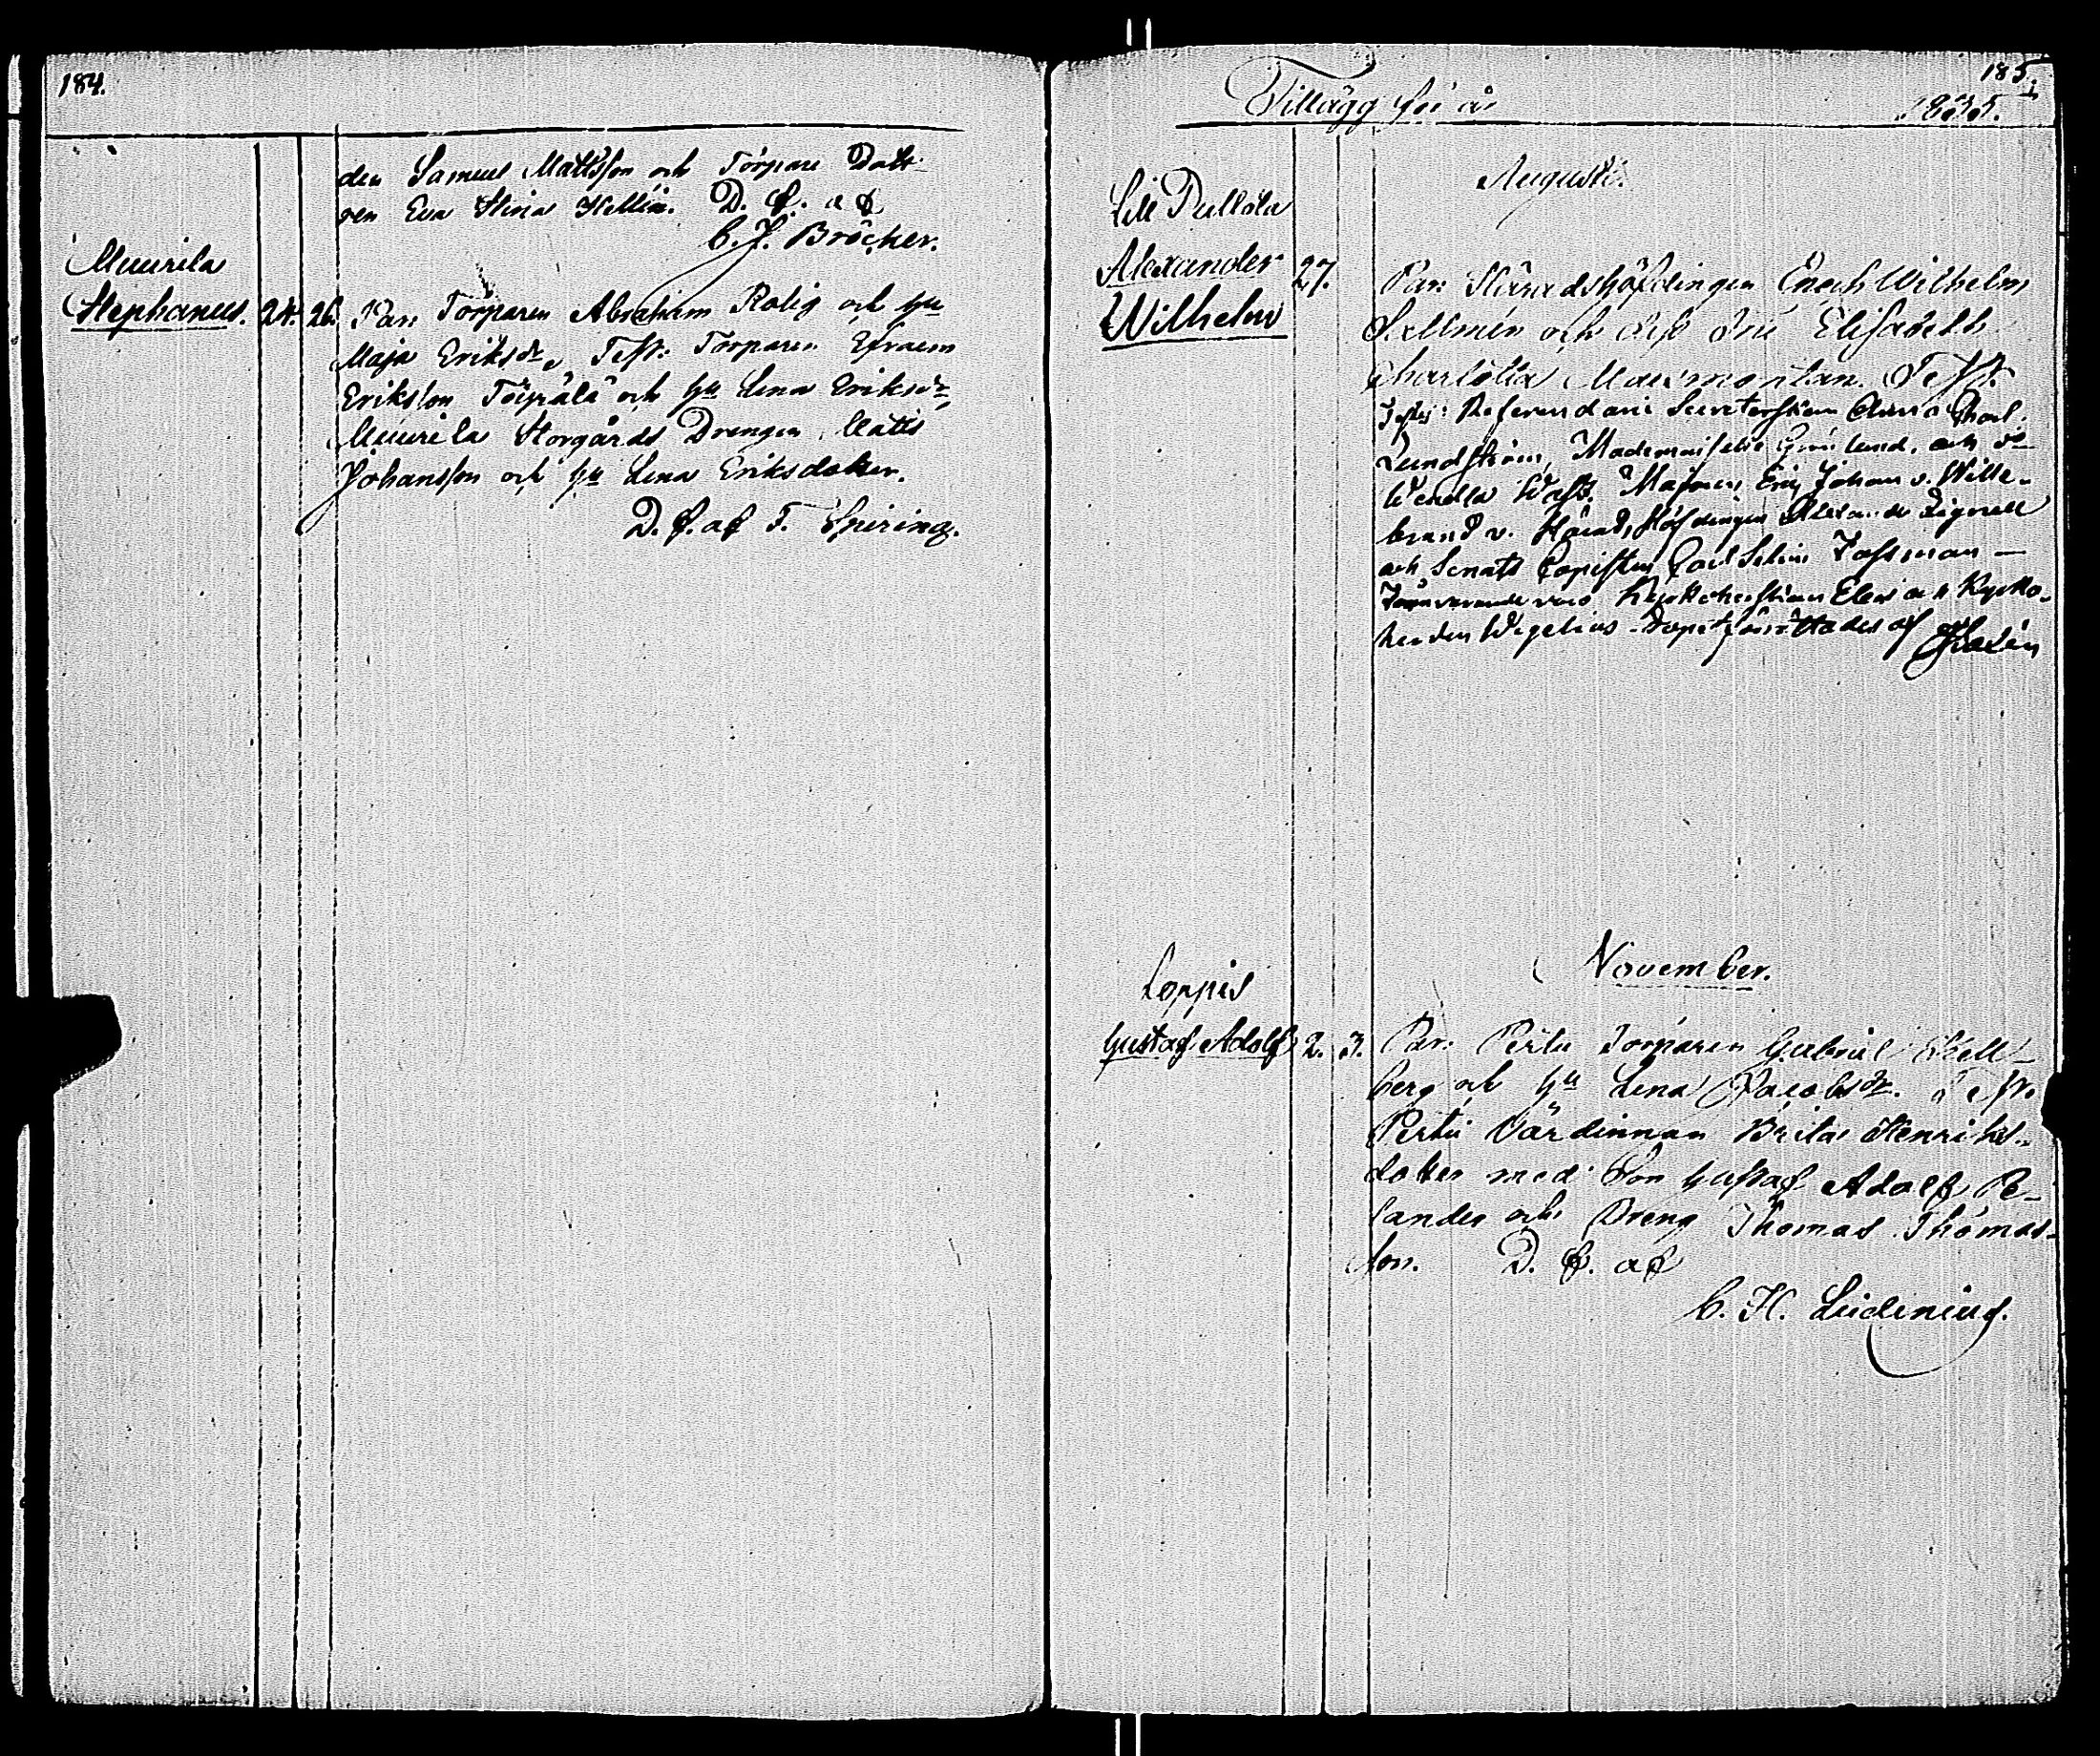 184.
den Samuel Mattsson och Torpare Dott-
ren Eva Stina Hellin. D. f. af
C. J. Bröcker.
Muurila
Stephanus. 24. 26. Par: Torparen Abraham Rolig och hu
Maja Eriksdr, Test: Torparen Efraem
Eriksson och hu Lena Eriksdr,
Muurila Storgårds Drengen Matts
Johansson och hu Lena Eriksdoter.
D. f. af F. Spiring.
185.
Tillägg för år 1835.
Augusti.
Lill Pullola
Alexander 27. Par: Häradshöfdingen Enoch Wilhelm
Wilhelm
Sallmén och dess Fru Elisabeth
Charlotta Test.
Testes: Referendarie
Lundström, Mademoiselle Grönlund, och
Wendla Majoren Eric Johan v. Wille-
brand v. Häradshöfdingen Alexander Lignell
och Senats Copisten Carl
och Kyrko-
herden Wigelius. Dopet förrättades af
November.
Loppis
Gustaf Adolf 2. 3. Par: Torparen Gabriel Hell-
berg och hu Lena Jacobsdr. Test.
Värdinnan Brita Henriks-
doter med Son Gustaf Adolf
och Dreng Thomas Thomas-
son. D. f. af
C. H. Lidenius.